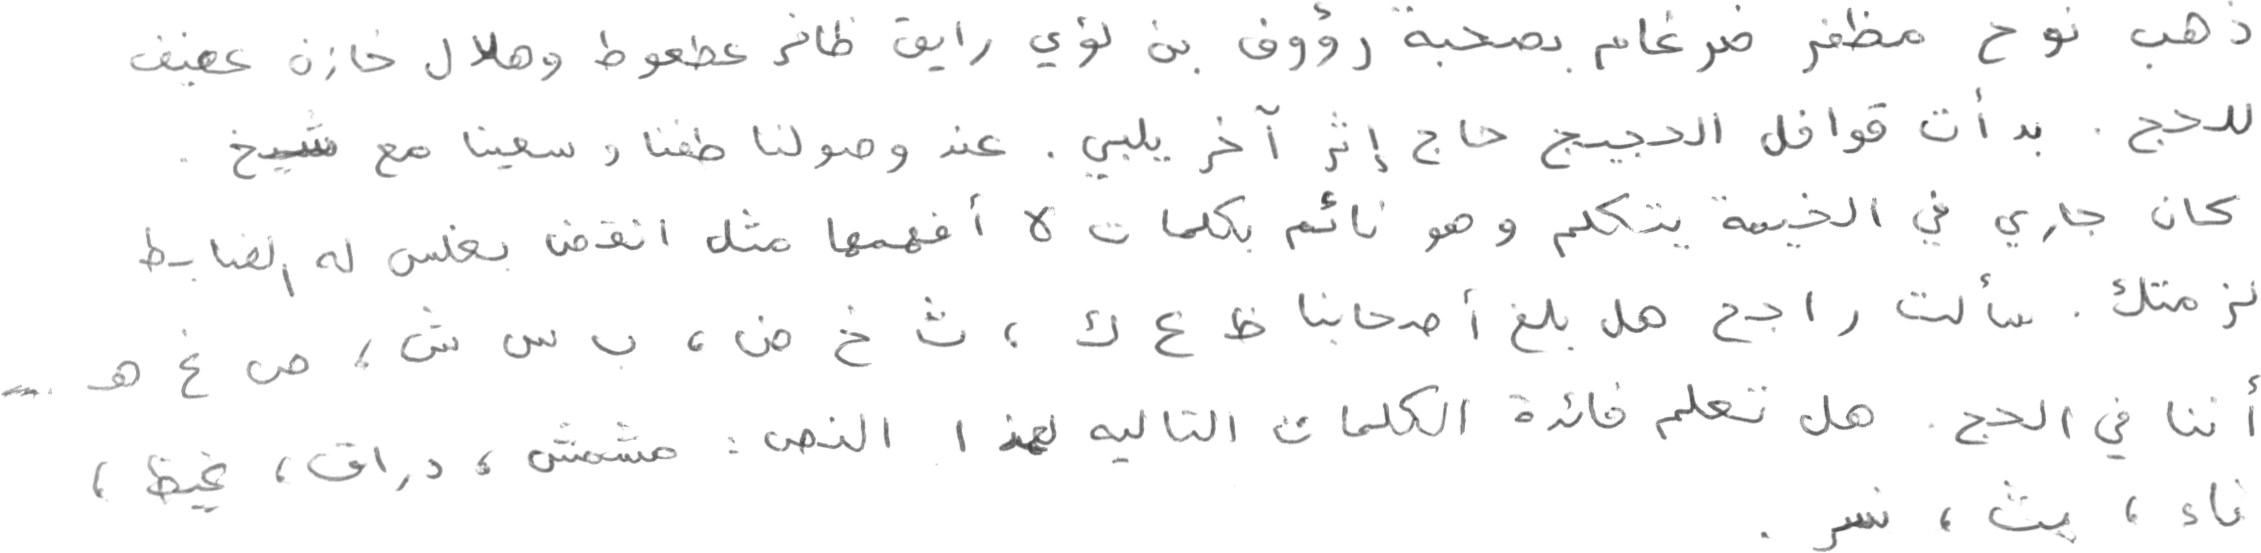 ذهب نوح مظفر ضرغام بصحبة رؤوف بن لؤي رايق ظافر عطعوط وهلال خازن عفيف
للحج. بدأت قوافل الحجيج حاج إثر آخر يلبي. عند وصولنا طفنا وسعينا مع شيخ.
كان جاري في الخيمة يتكلم وهو نائم بكلمات لا أفهمها مثل انقض بغلس له الضابط
لزمتك. سألت راجح هل بلغ أصحابنا ظ ع ك، ث خ ض، ب س ش، ص غ هـ ...
أننا في الحج. هل تعلم فائدة الكلمات التاليه لهذا النص: مشمش، دراق، غيظ،
ناء، بث، نسر.